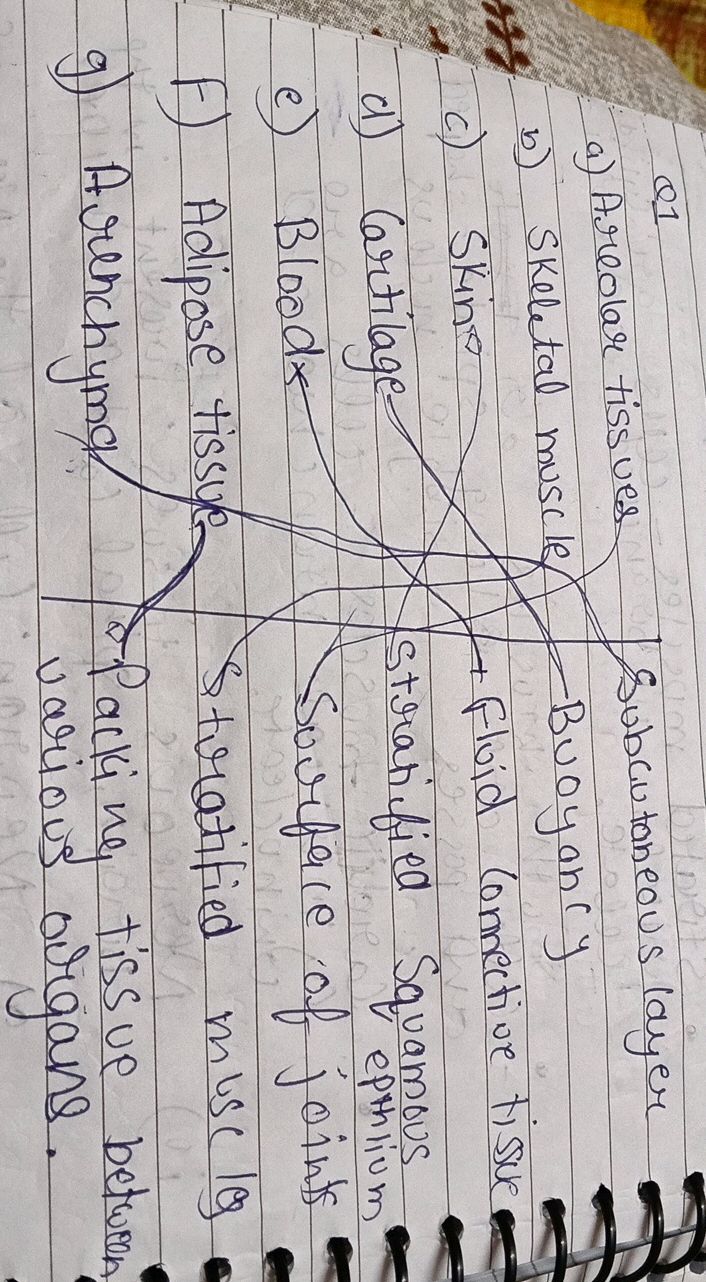 Q1
a) Areolar tissues Subcutaneous layer
b) Skeletal muscle Buoyancy
c) Skin Fluid Connective tissue
d) Cartilage Stratified Squamous
epthlium,
e) Blood Surface of joints
f) Adipose tissue Stratified muscles
g) Arenchyma Packing tissue between
various organs.